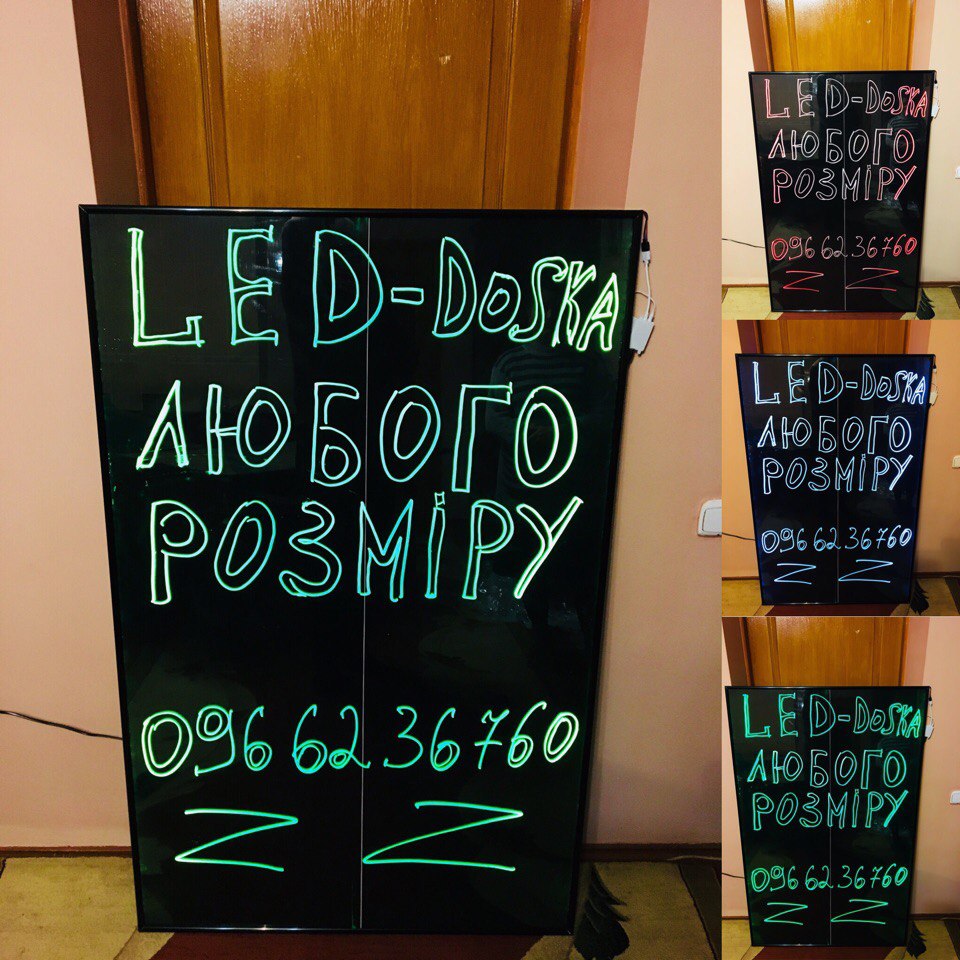 LED-DOSKA
ЛЮБОГО
РОЗМІРУ
096 62 36 760
Z Z
LED-DOSKA
ЛЮБОГО
РОЗМІРУ
096 62 36 760
Z Z
LED-DOSKA
ЛЮБОГО
РОЗМІРУ
096 62 36 760
Z Z
LED-DOSKA
ЛЮБОГО
РОЗМІРУ
096 62 36 760
Z Z